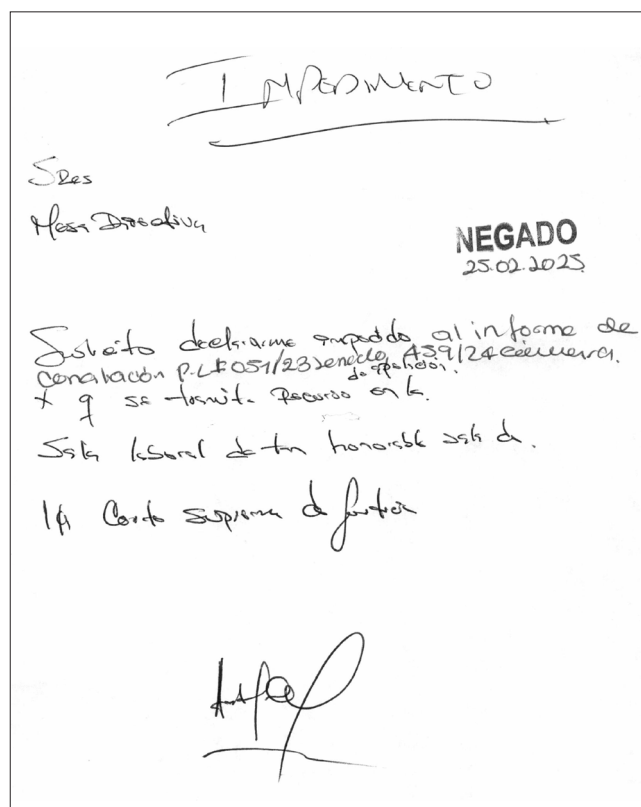 IMPEDIMENTO
Sres
Mesa Directiva
NEGADO
25.02.2025
Solicito declararme impedido al informe de
conciliación P.L# 051/23 senado, 459/24 cámara.
de apelación.
X q se tramita Recurso en la.
Sala laboral de tan honorable sala de.
la Corte Suprema de Justicia